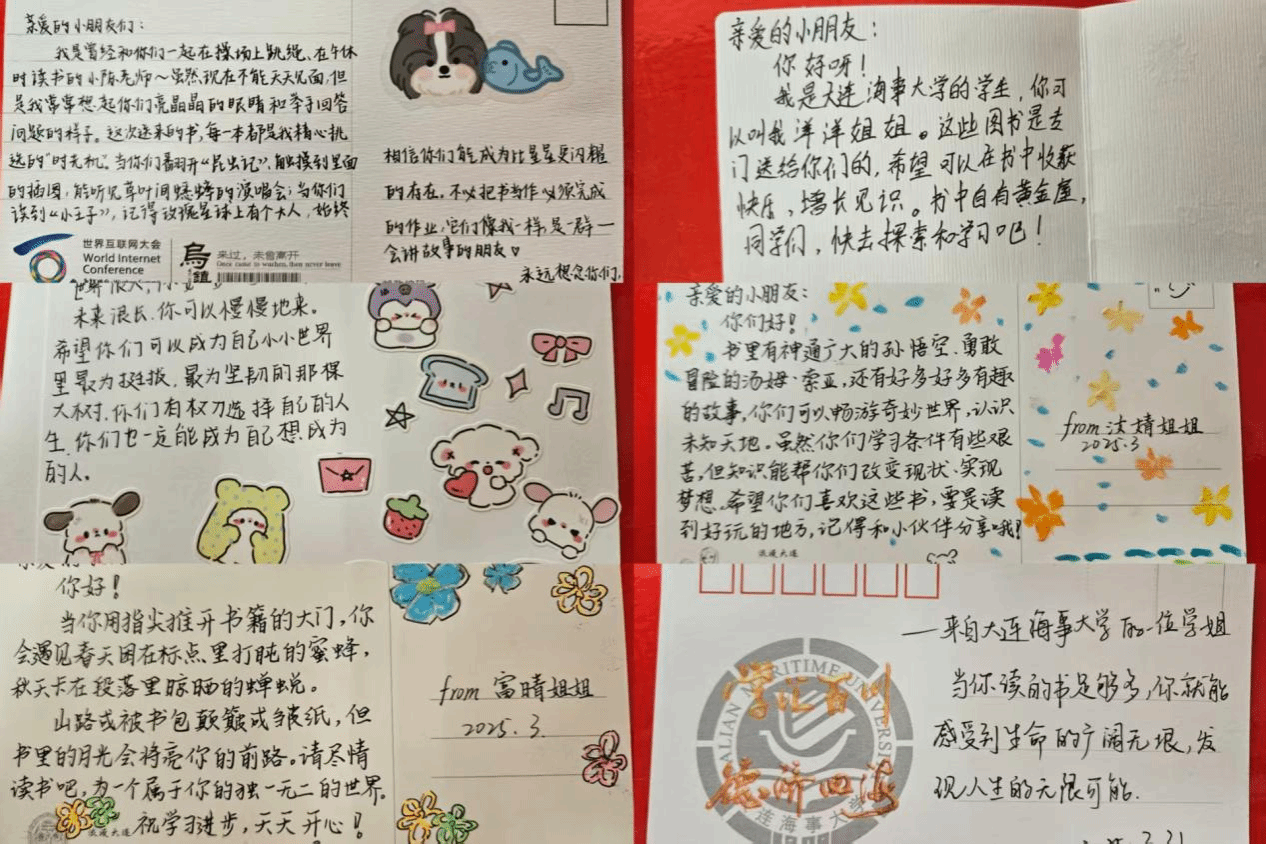 亲爱的小朋友们：
我是曾经和你们一起在操场上跳绳、在午休
时读书的小隋老师～虽然现在不能天天见面，但
是我常常想起你们亮晶晶的眼睛和举手回答
问题的样子。这次送来的书，每一本都是我精心挑
选的“时光机”。当你们翻开《昆虫记》、触摸到里面
的插图，能听见草叶间蟋蟀的演唱会；当你们
读到《小王子》，记得玫瑰星球上有个大人，始终
世界互联网大会
World Internet
Conference
烏鎮
来过，未曾离开
Once came to wuzhen, then never leave
相信你们能成为比星星更闪耀
的存在。不必把书当作必须完成
的作业，它们像我一样，是一群
会讲故事的朋友♡
永远想念你们，
亲爱的小朋友：
你好呀！
我是大连海事大学的学生，你可
以叫我洋洋姐姐。这些图书是专
门送给你们的，希望可以在书中收获
快乐，增长见识。书中自有黄金屋，
同学们，快去探索和学习吧！
未来很长，你可以慢慢地来。
希望你们可以成为自己小小世界
里最为挺拔，最为坚韧的那棵
大树，你们有权力选择自己的人
生，你们也一定能成为自己想成为
的人。
亲爱的小朋友：
你们好！
书里有神通广大的孙悟空、勇敢
冒险的汤姆·索亚，还有好多好多有趣
的故事，你们可以畅游奇妙世界，认识
未知天地。虽然你们学习条件有些艰
苦，但知识能帮你们改变现状、实现
梦想。希望你们喜欢这些书，要是读
到好玩的地方，记得和小伙伴分享哦！
浪漫大连
from 婧姐姐
2025.3
你好！
当你用指尖推开书籍的大门，你
会遇见春天困在标点里打盹的蜜蜂，
秋天卡在段落里晾晒的蝉蜕。
山路或被书包颠簸成皱纸，但
书里的月光会将亮你的前路。请尽情
读书吧，为一个属于你的独一无二的世界。
浪漫大连
祝学习进步，天天开心！
from 富晴姐姐
2025.3.
——来自大连海事大学的一位学姐
当你读的书足够多，你就能
感受到生命的广阔无垠，发
现人生的无限可能.
学汇百川
德济四海
ALIAN MARITIME UNIVERSI
连海事大学
3.21